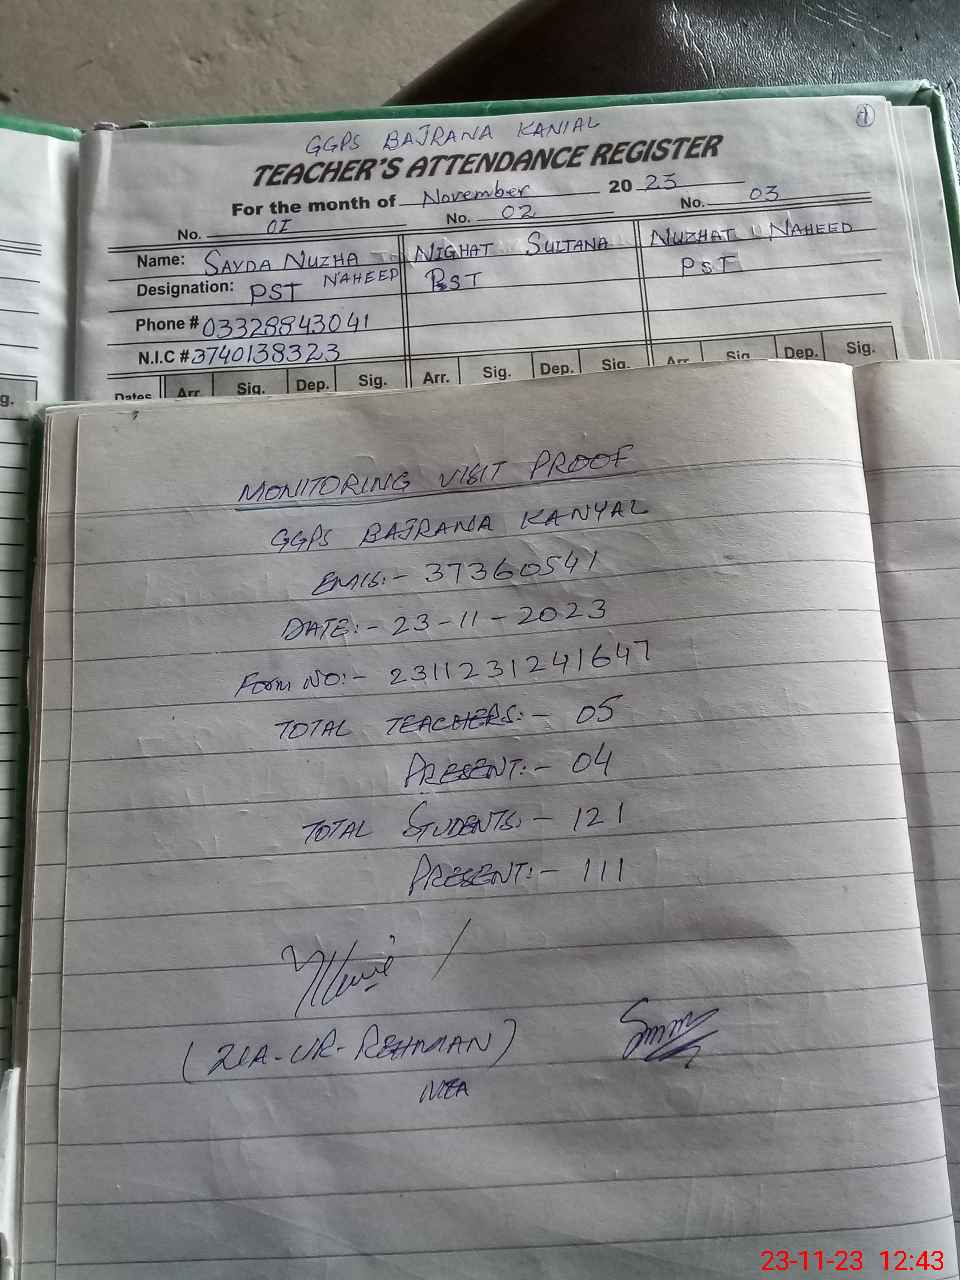 GGPS BAJRANA KANIAL
1
TEACHER'S ATTENDANCE REGISTER
For the month of November 20 23
No. 01 No. 02 No. 03
Name: SAYDA NUZHA NAHEED NIGHAT SULTANA NUZHAT NAHEED
Designation: PST PST PST
Phone # 03328843041
N.I.C # 3740138323
Dates Arr. Sig. Dep. Sig. Arr. Sig. Dep. Sig. Arr. Sig. Dep. Sig.
g.
MONITORING VISIT PROOF
GGPS BAJRANA KANYAL
EMIS:- 37360541
DATE:- 23-11-2023
Form NO:- 2311231241647
TOTAL TEACHERS:- 05
PRESENT:- 04
TOTAL STUDENTS:- 121
PRESENT:- 111
(ZIA-UR-REHMAN)
MEA
23-11-23 12:43